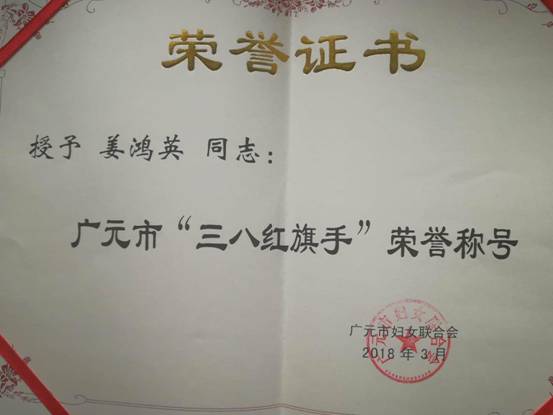 荣誉证书
授予 姜鸿英 同志：
广元市“三八红旗手”荣誉称号
广元市妇女联合会
2018 年 3 月
广元市妇女联合会